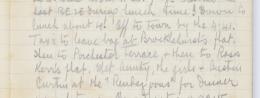 last R.E. is during lunch time! Down to
lunch about 4. Off to Town by the 4.41.
Taxi to leave bag at Brocklehursts flat,
then to Porchester Terrace & then to Ross
Kerrs flat, Met Aunty, the girls & Austin
Curtin at the "Rendezvous" for dinner